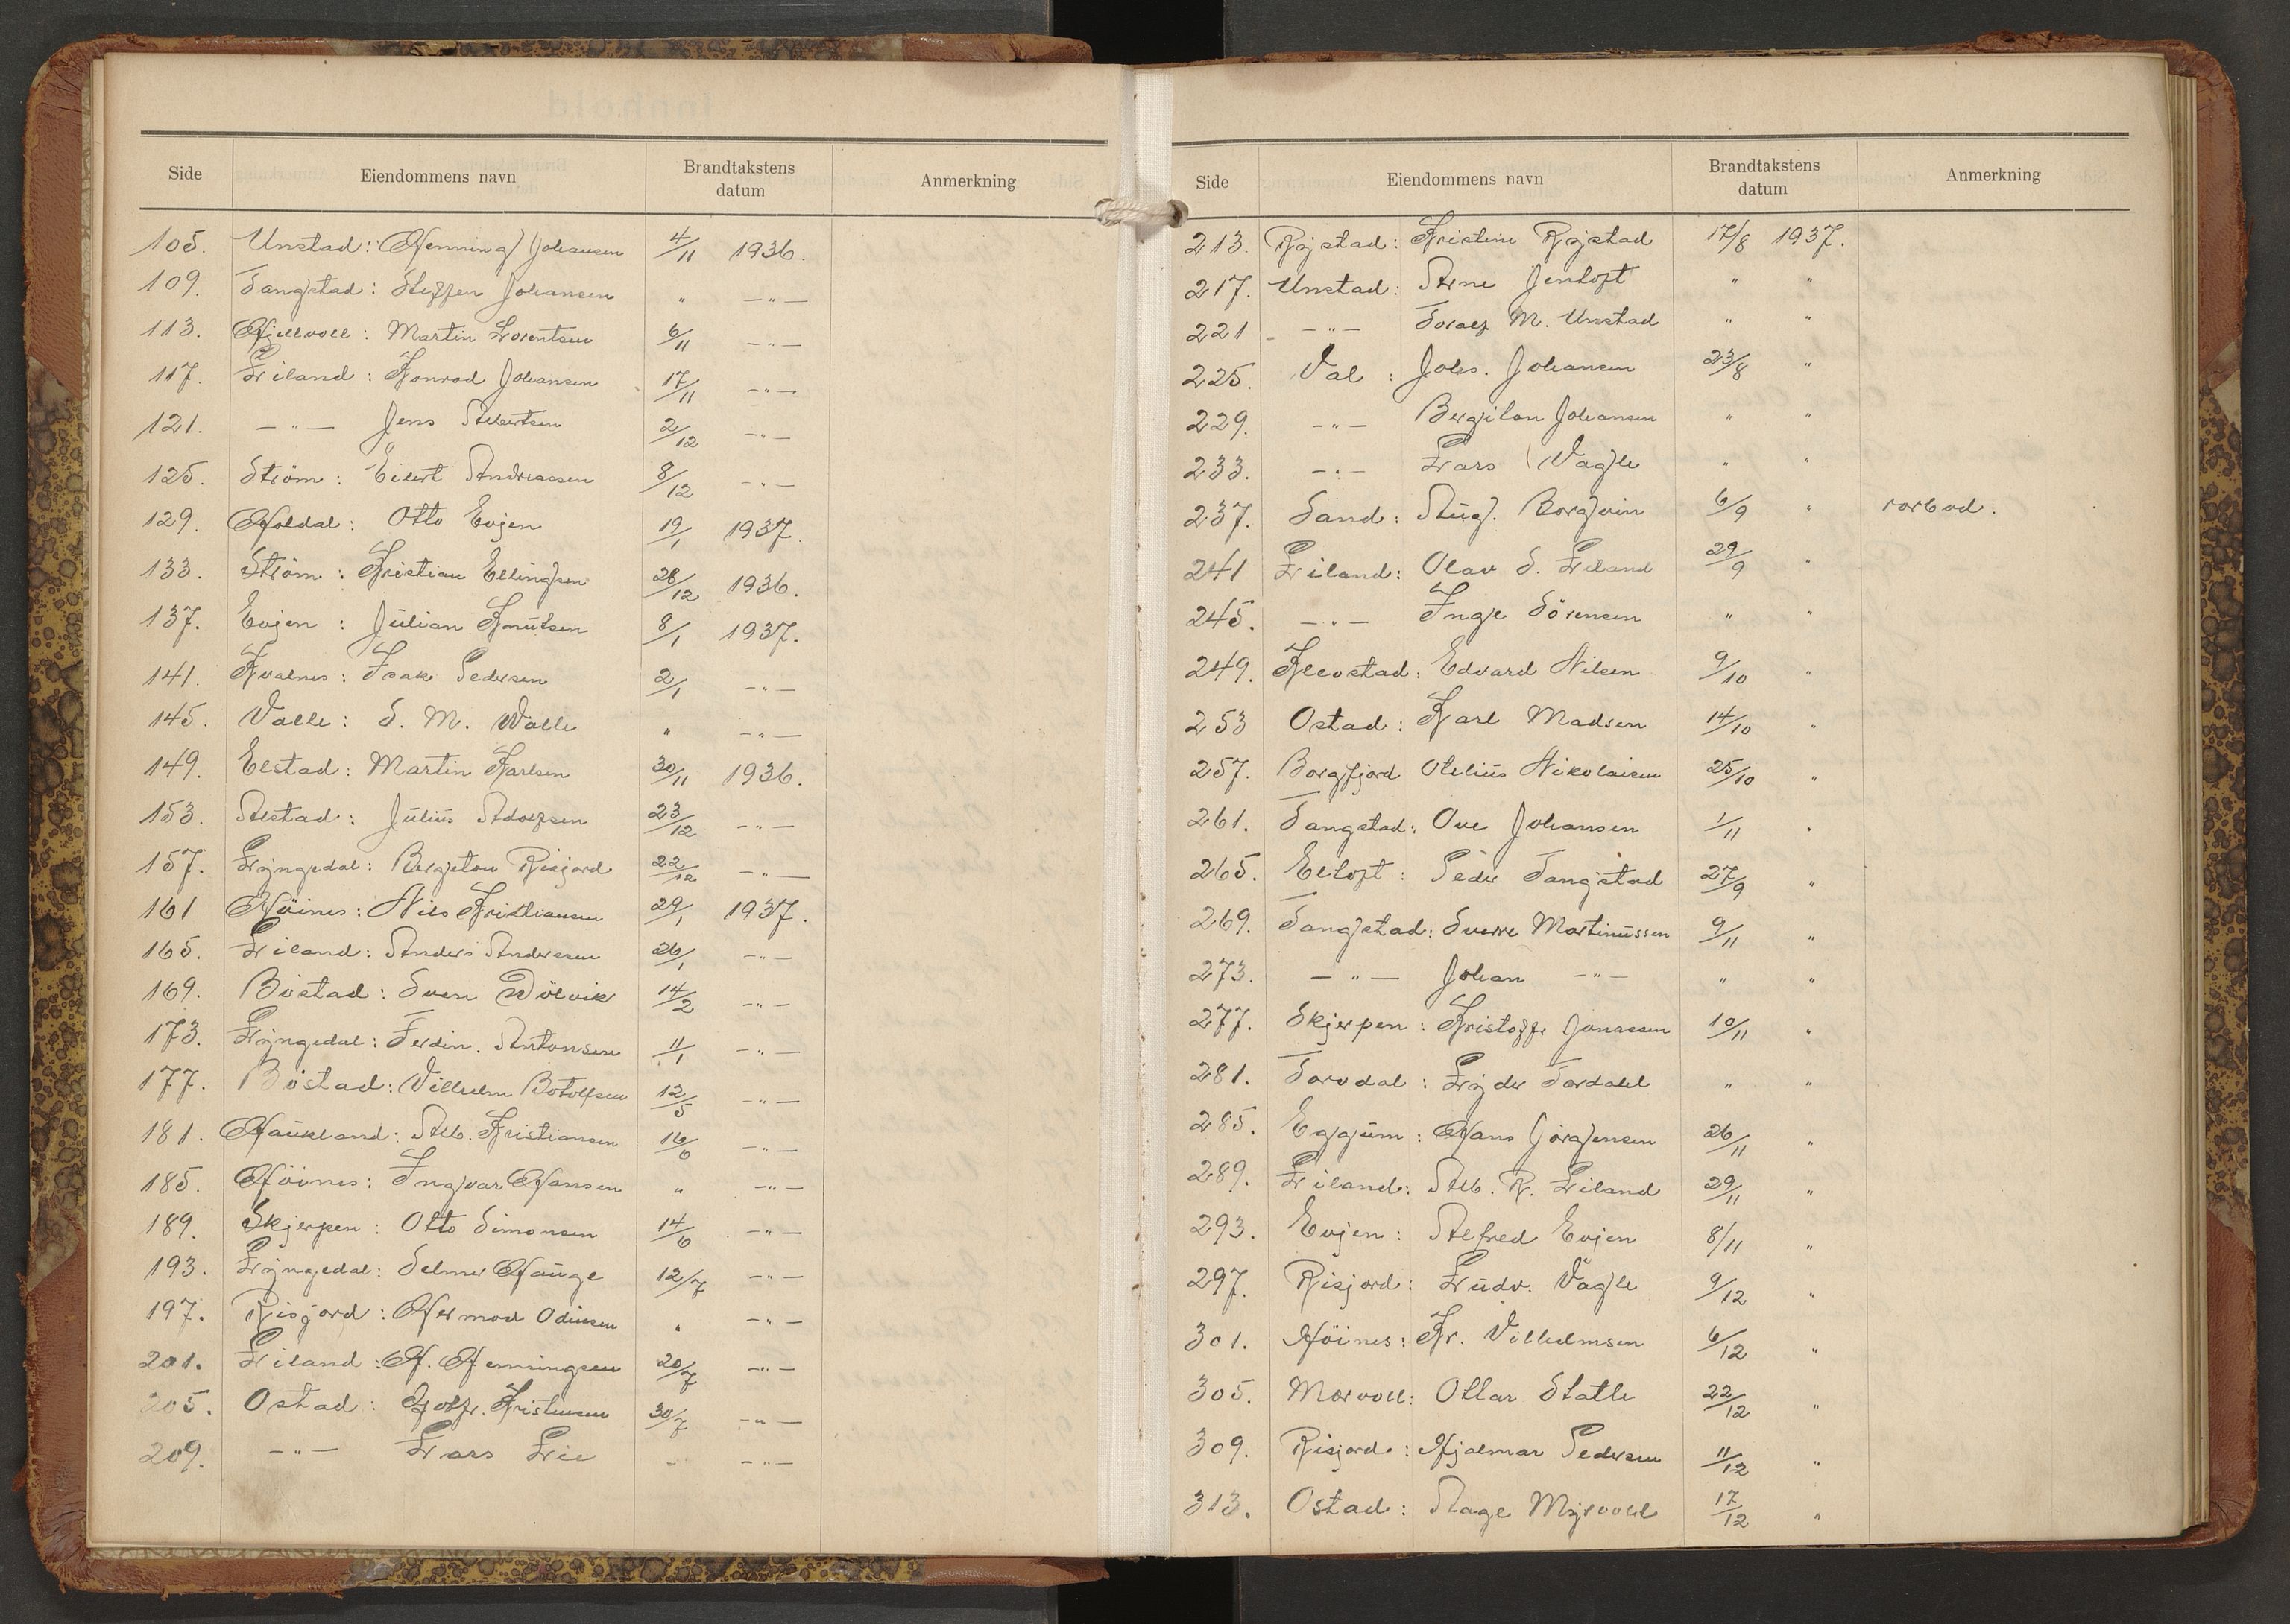 Side Eiendommens navn Brandtakstens datum Anmerkning
105. Unstad: Henning Johansen 4/11 1936.
109. Tangstad: Steffen Johansen " —"—
113. Hjellvoll: Martin Lorentsen 6/11 —"—
117. Liland: Konrad Johansen 17/11 —"—
121. —"— Jens Albertsen 2/12 —"—
125. Ström: Eilert Andreassen 8/12 —"—
129. Holdal: Otto Evjen 19/1 1937.
133. Ström: Kristian Ellingsen 28/12 1936.
137. Evjen: Julian Knutsen 8/1 1937.
141. Kvalnes: Isak Pedersen 2/1 —"—
145. Valle: S. M. Walle " —"—
149. Elstad: Martin Karlsen 30/11 1936.
153. Alstad: Julius Adolfsen 23/12 —"—
157. Lyngedal: Bergeton Risjord 22/12 —"—
161 Höines: Nils Kristiansen 29/1 1937.
165. Liland: Anders Andersen 26/1 —"—
169. Böstad: Sven Dölvik 14/2 —"—
173. Lyngedal: Ferdin. Antonsen 11/1 —"—
177. Böstad: Vilhelm Botolfsen 12/5 —"—
181. Haukland: Alb. Kristiansen 16/6 —"—
185. Höines: Ingvar Hansen " —"—
189. Skjerpen: Otto Simonsen 14/6 —"—
193. Lyngedal: Selmer Hauge 12/7 —"—
197. Risjord: Hermod Odinsen " —"—
201. Liland: H. Henningsen 20/7 —"—
205. Ostad: Kristensen 30/7 —"—
209. —"— Lars Lie " —"—
Side Eiendommens navn Brandtakstens datum Anmerkning
213. Rystad: Kristine Rystad 17/8 1937.
217. Unstad: Arne Jentoft " "
221 —"— Toralf M. Unstad " "
225. Val: Johs. Johansen 23/8 "
229. —"— Johansen " "
233. —"— Lars Vagle " "
237. Sand: Aug. Borgvin 6/9 " rorbod.
241 Liland: Olav S. Liland 29/9 "
245. —"— Inge Sörensen " "
249. Klevstad: Edvard Nilsen 9/10 "
253 Ostad: Karl Madsen 14/10 "
257. Borgfjord Otelius Nikolaisen 25/10 "
261. Tangstad: Ove Johansen 1/11 "
265. Eltoft: Peder Tangstad 27/9 "
269. Tangstad: Sverre Martinussen 9/11 "
273. —"— Johan —"— " "
277. Skjerpen: Kristoffer Jonassen 10/11 "
281. Torvdal: Lyder Tordahl " "
285. Eggum: Hans Jörgensen 26/11 "
289. Liland: Alb. R. Liland 29/11 "
293. Evjen: Alfred Evjen 8/11 "
297. Risjord: Ludv. Vagle 9/12 "
301. Höines: Kr. Vilhelmsen 6/12 "
305. Morvoll: Ottar Statle 22/12 "
309. Risjord: Hjalmar Pedersen 11/12 "
313. Ostad: Aage Myrvold 17/12 "